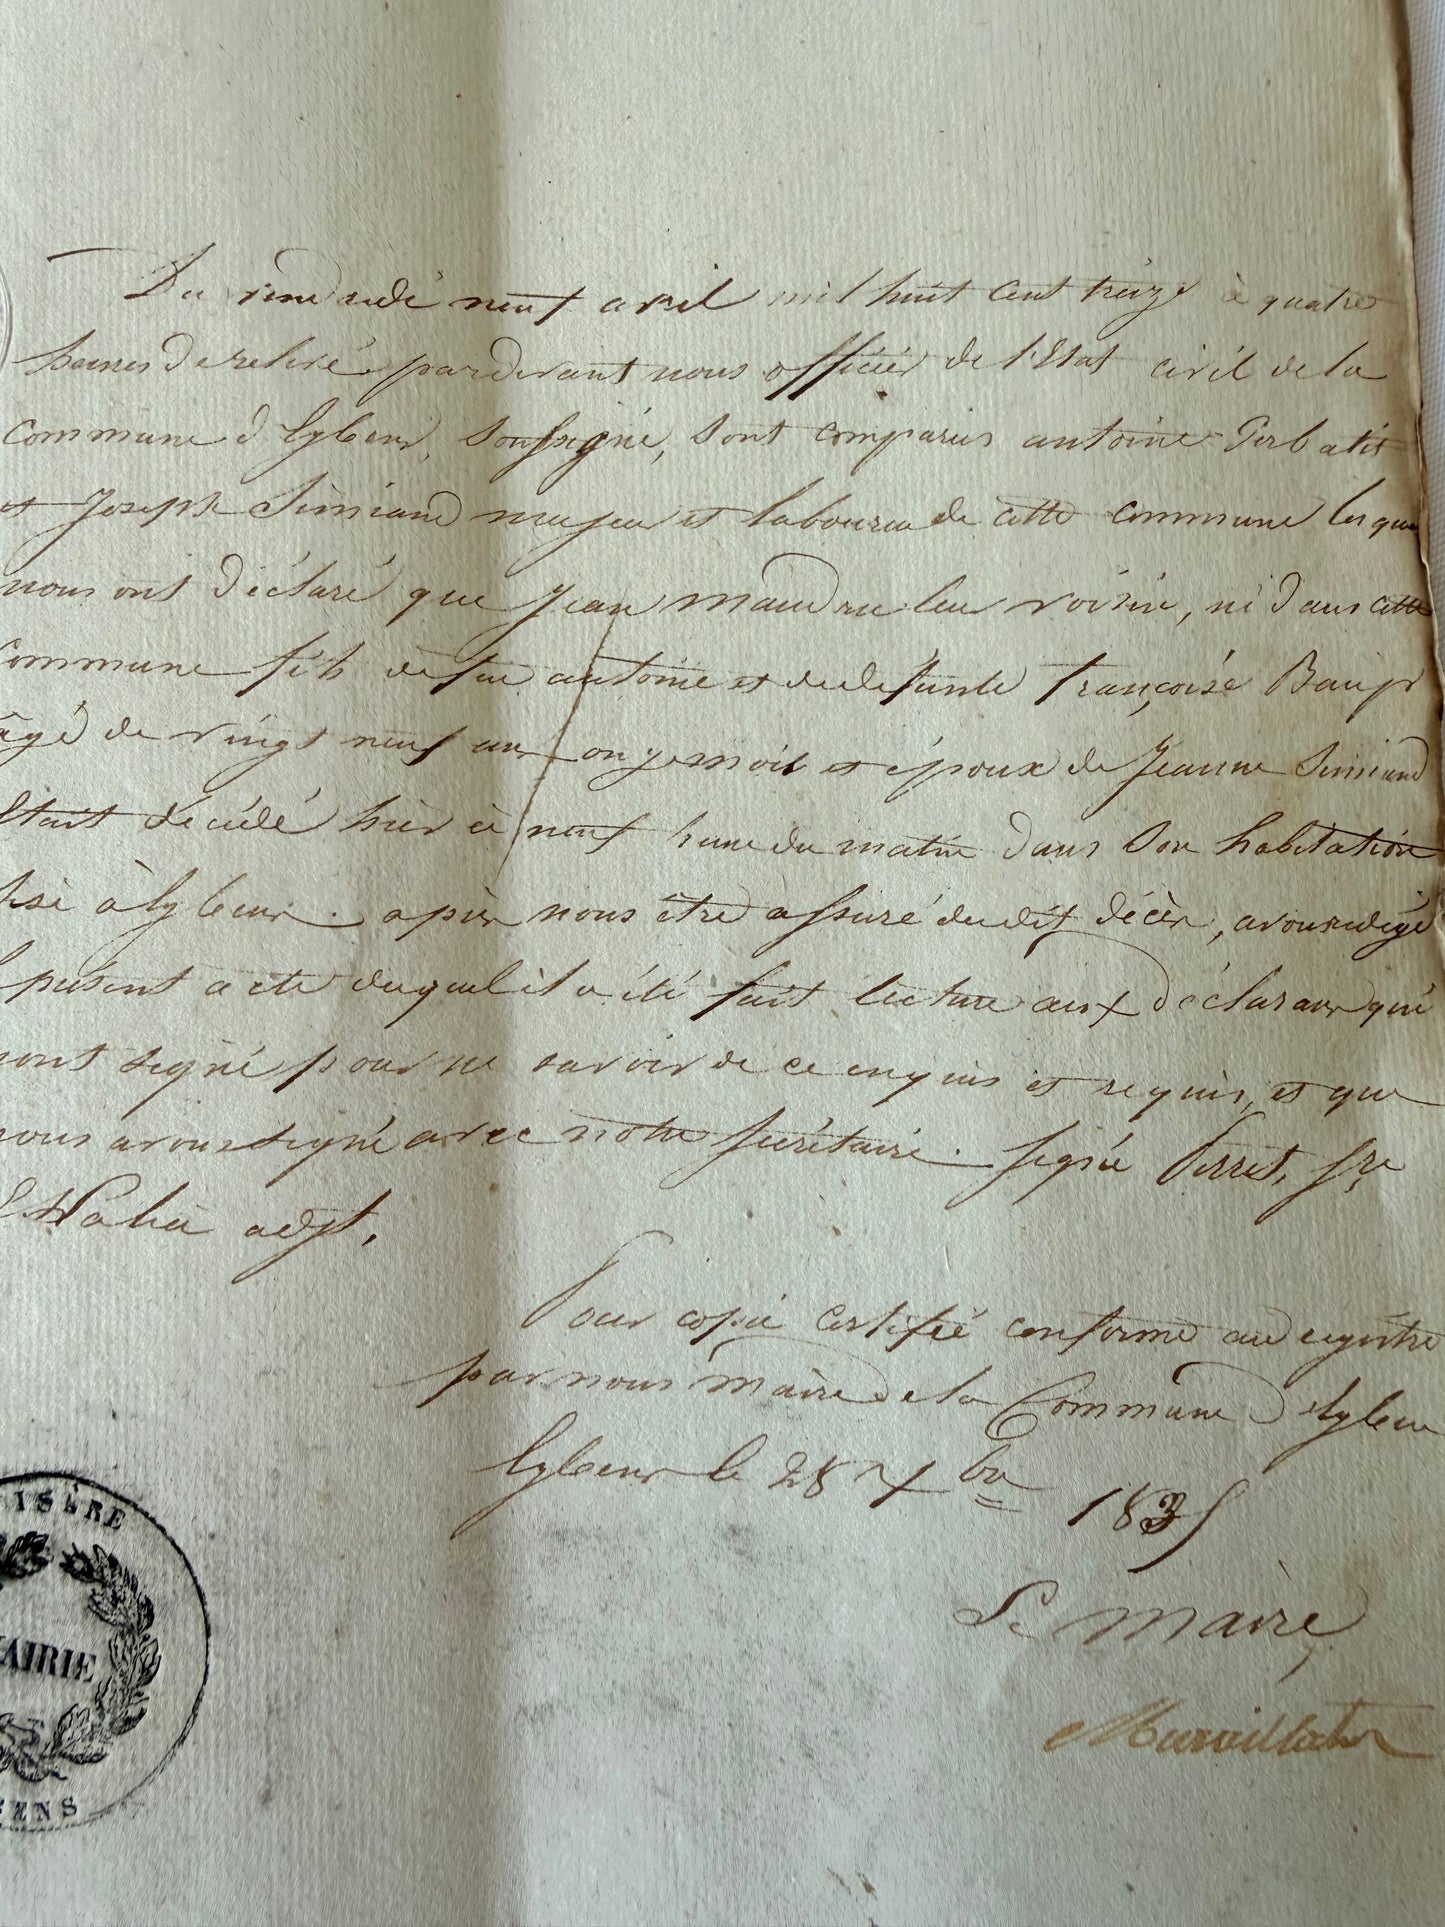 Du vendredi neuf avril mil huit cent treize à quatre
heures de relevé pardevant nous officier de l'Etat civil de la
commune d'Eybens, soussigné, sont comparus antoine
et Joseph Simiand majeur et laboureur de cette commune lesquels
nous ont déclaré que Jean mandru leur voisin, né dans cette
commune fils de feu antoine et de defunte françoise
âgé de vingt neuf ans onze mois et époux de Jeanne Simiand
Etait décédé hier à neuf heure du matin dans son habitation
sise à Eybens. après nous être assuré dudit décès, avons redigé
présent acte duquel il a été fait lecture aux déclarans qui
n'ont signé pour ne savoir de ce enquis et requis, et que
nous avons signé avec notre secrétaire. signé Perret, sre
adjt.
Pour copie certifié conforme au registre
par nous maire de la Commune d'Eybens
Eybens le 28 Xbre 1835
Le maire
ISÈRE
MAIRIE
BENS